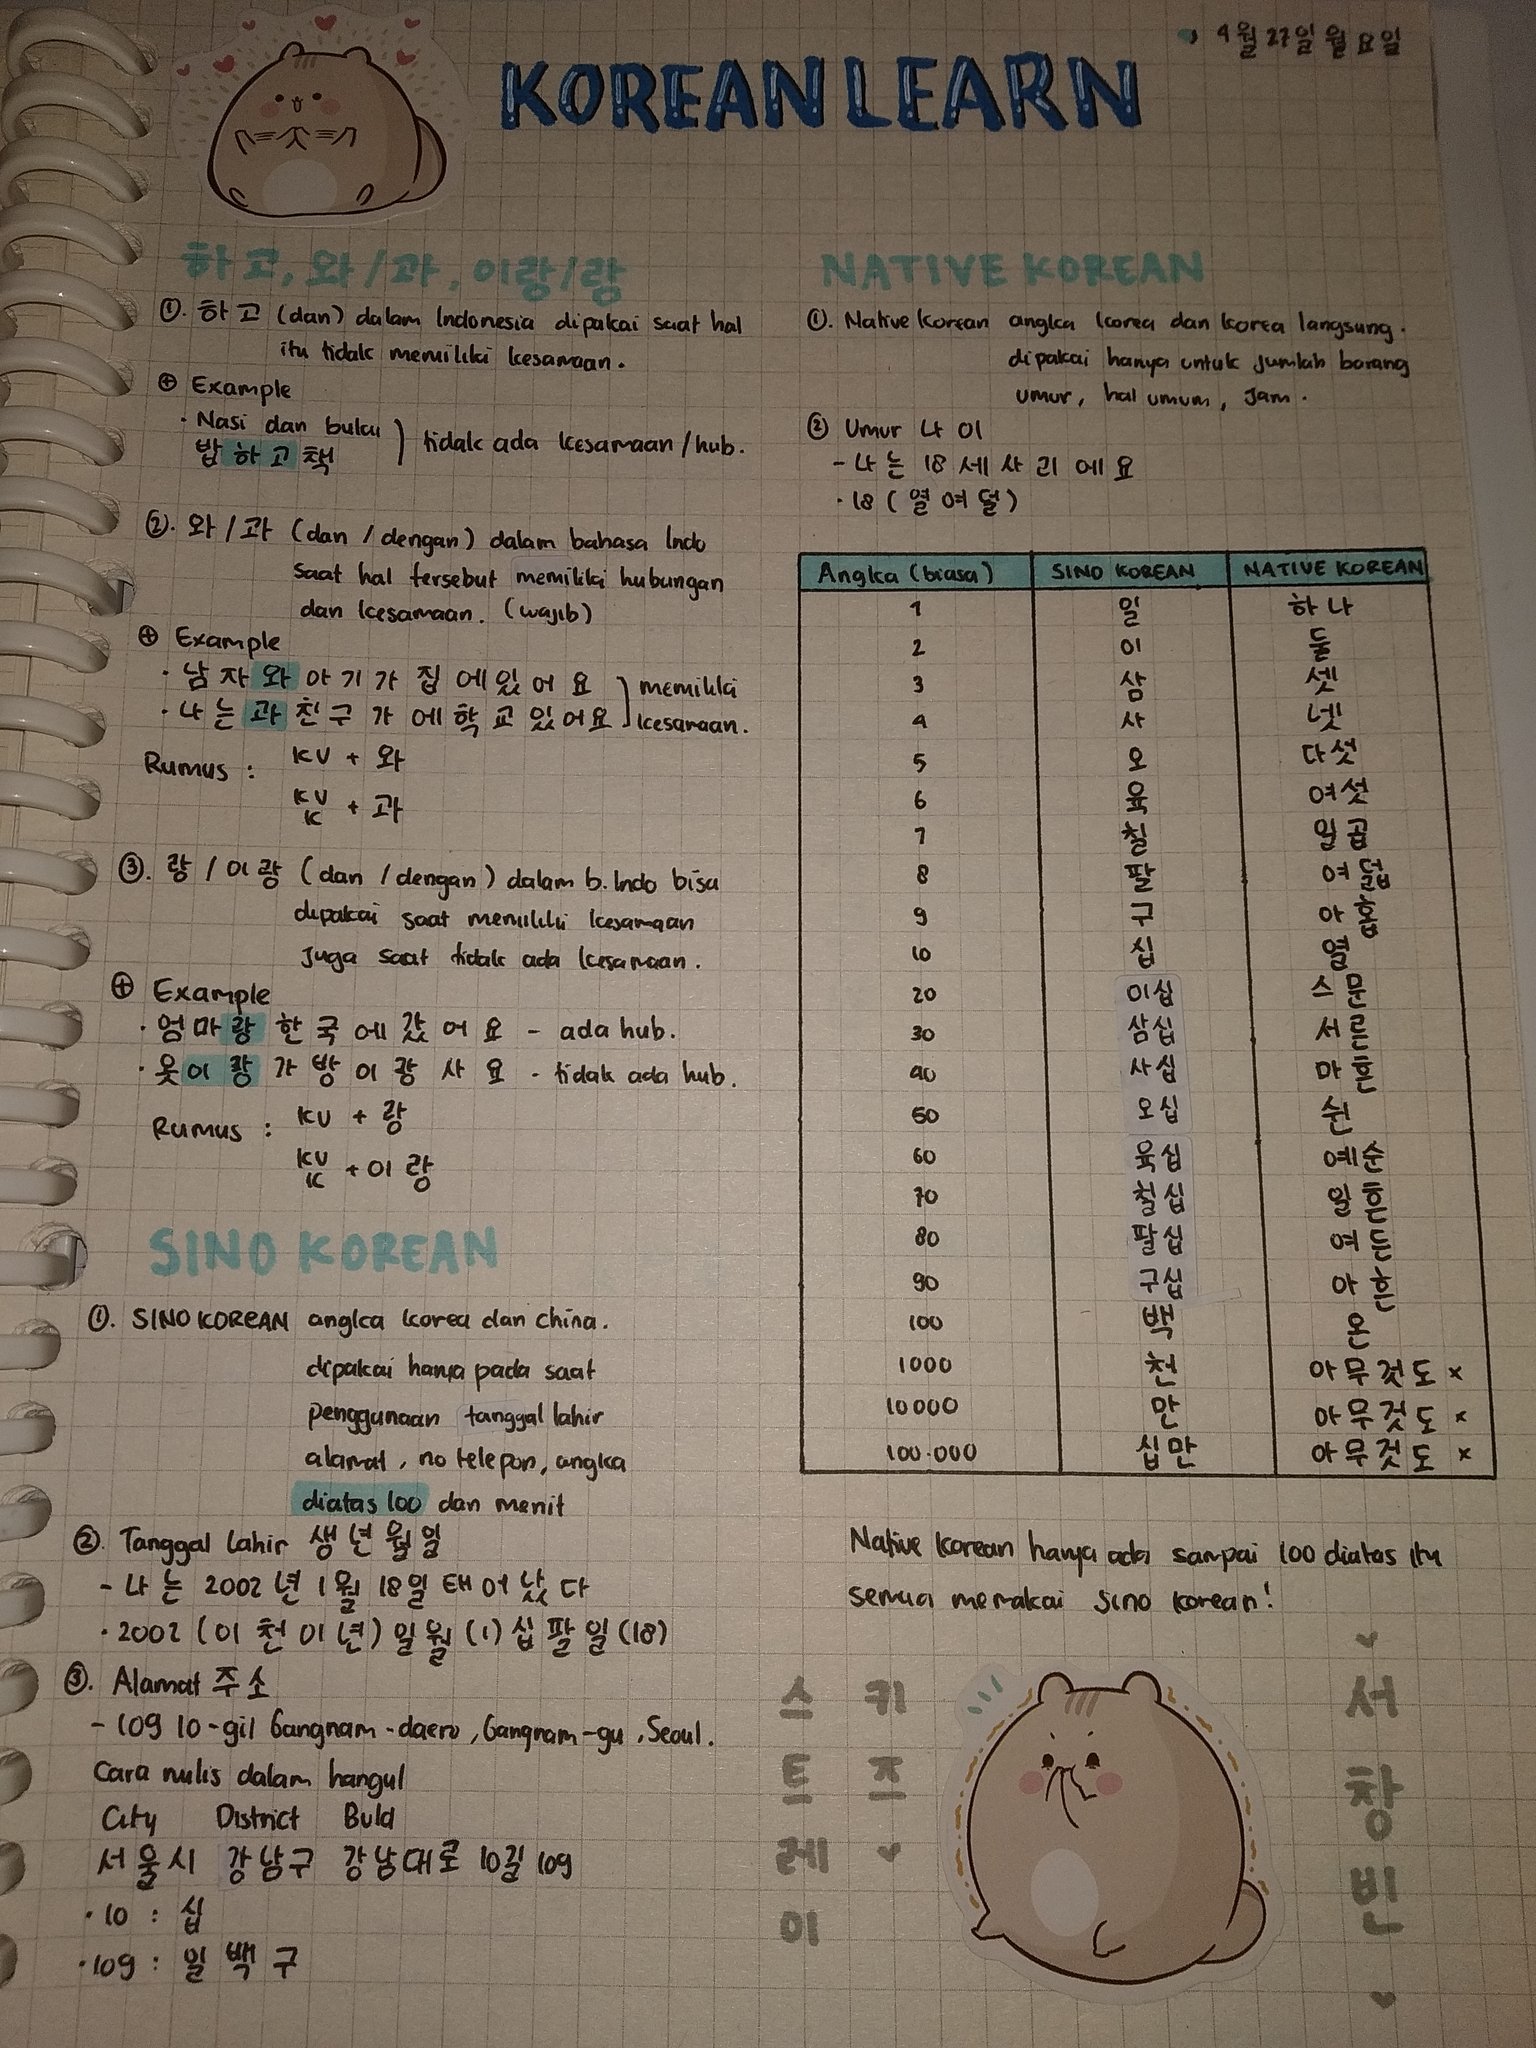 4월 27일 월요일
KOREAN LEARN
하고, 와/과, 이랑/랑
①. 하고 (dan) dalam Indonesia dipakai saat hal
itu tidak memiliki kesamaan.
⊕ Example
· Nasi dan buku
밥하고책
tidak ada kesamaan/hub.
②. 와/과 (dan / dengan) dalam bahasa Indo
saat hal tersebut memiliki hubungan
dan kesamaan. (wajib)
⊕ Example
· 남자와아기가 집에있어요
· 나는과친구가에학교있어요
memiliki
kesamaan.
Rumus : KV + 와
KV
K + 과
③. 랑/이랑 (dan / dengan) dalam b. Indo bisa
dipakai saat memiliki kesamaan
Juga saat tidak ada kesamaan.
⊕ Example
· 엄마랑 한국에갔어요 - ada hub.
· 옷이랑가방이랑사요 - tidak ada hub.
Rumus : KV + 랑
KV
K + 이랑
SINO KOREAN
①. SINO KOREAN angka korea dan china.
dipakai hanya pada saat
penggunaan tanggal lahir
alamat, no telepon, angka
diatas 100 dan menit
②. Tanggal lahir 생년월일
- 나는 2002년 1월 18일 태어났다
· 2002 (이천이년) 일월 (1) 십팔일 (18)
③. Alamat 주소
- 109 10-gil Gangnam-daero, Gangnam-gu, Seoul.
Cara nulis dalam hangul
City District Build
서울시 강남구 강남대로 10길 109
· 10 : 십
· 109 : 일백구
NATIVE KOREAN
①. Native Korean angka korea dan korea langsung.
dipakai hanya untuk jumlah barang
umur, hal umum, Jam.
② Umur 나이
- 나는 18세사리에요
· 18 (열여덜)
Angka (biasa) SINO KOREAN NATIVE KOREAN
1 일 하나
2 이 둘
3 삼 셋
4 사 넷
5 오 다섯
6 육 여섯
7 칠 일곱
8 팔 여덟
9 구 아홉
10 십 열
20 이십 스문
30 삼십 서른
40 사십 마흔
50 오십 쉰
60 육십 예순
70 칠십 일흔
80 팔십 여든
90 구십 아흔
100 백 온
1000 천 아무것도 x
10000 만 아무것도 x
100.000 십만 아무것도 x
Native korean hanya ada sampai 100 diatas itu
semua memakai sino korean!
스트레이
키즈
서창빈